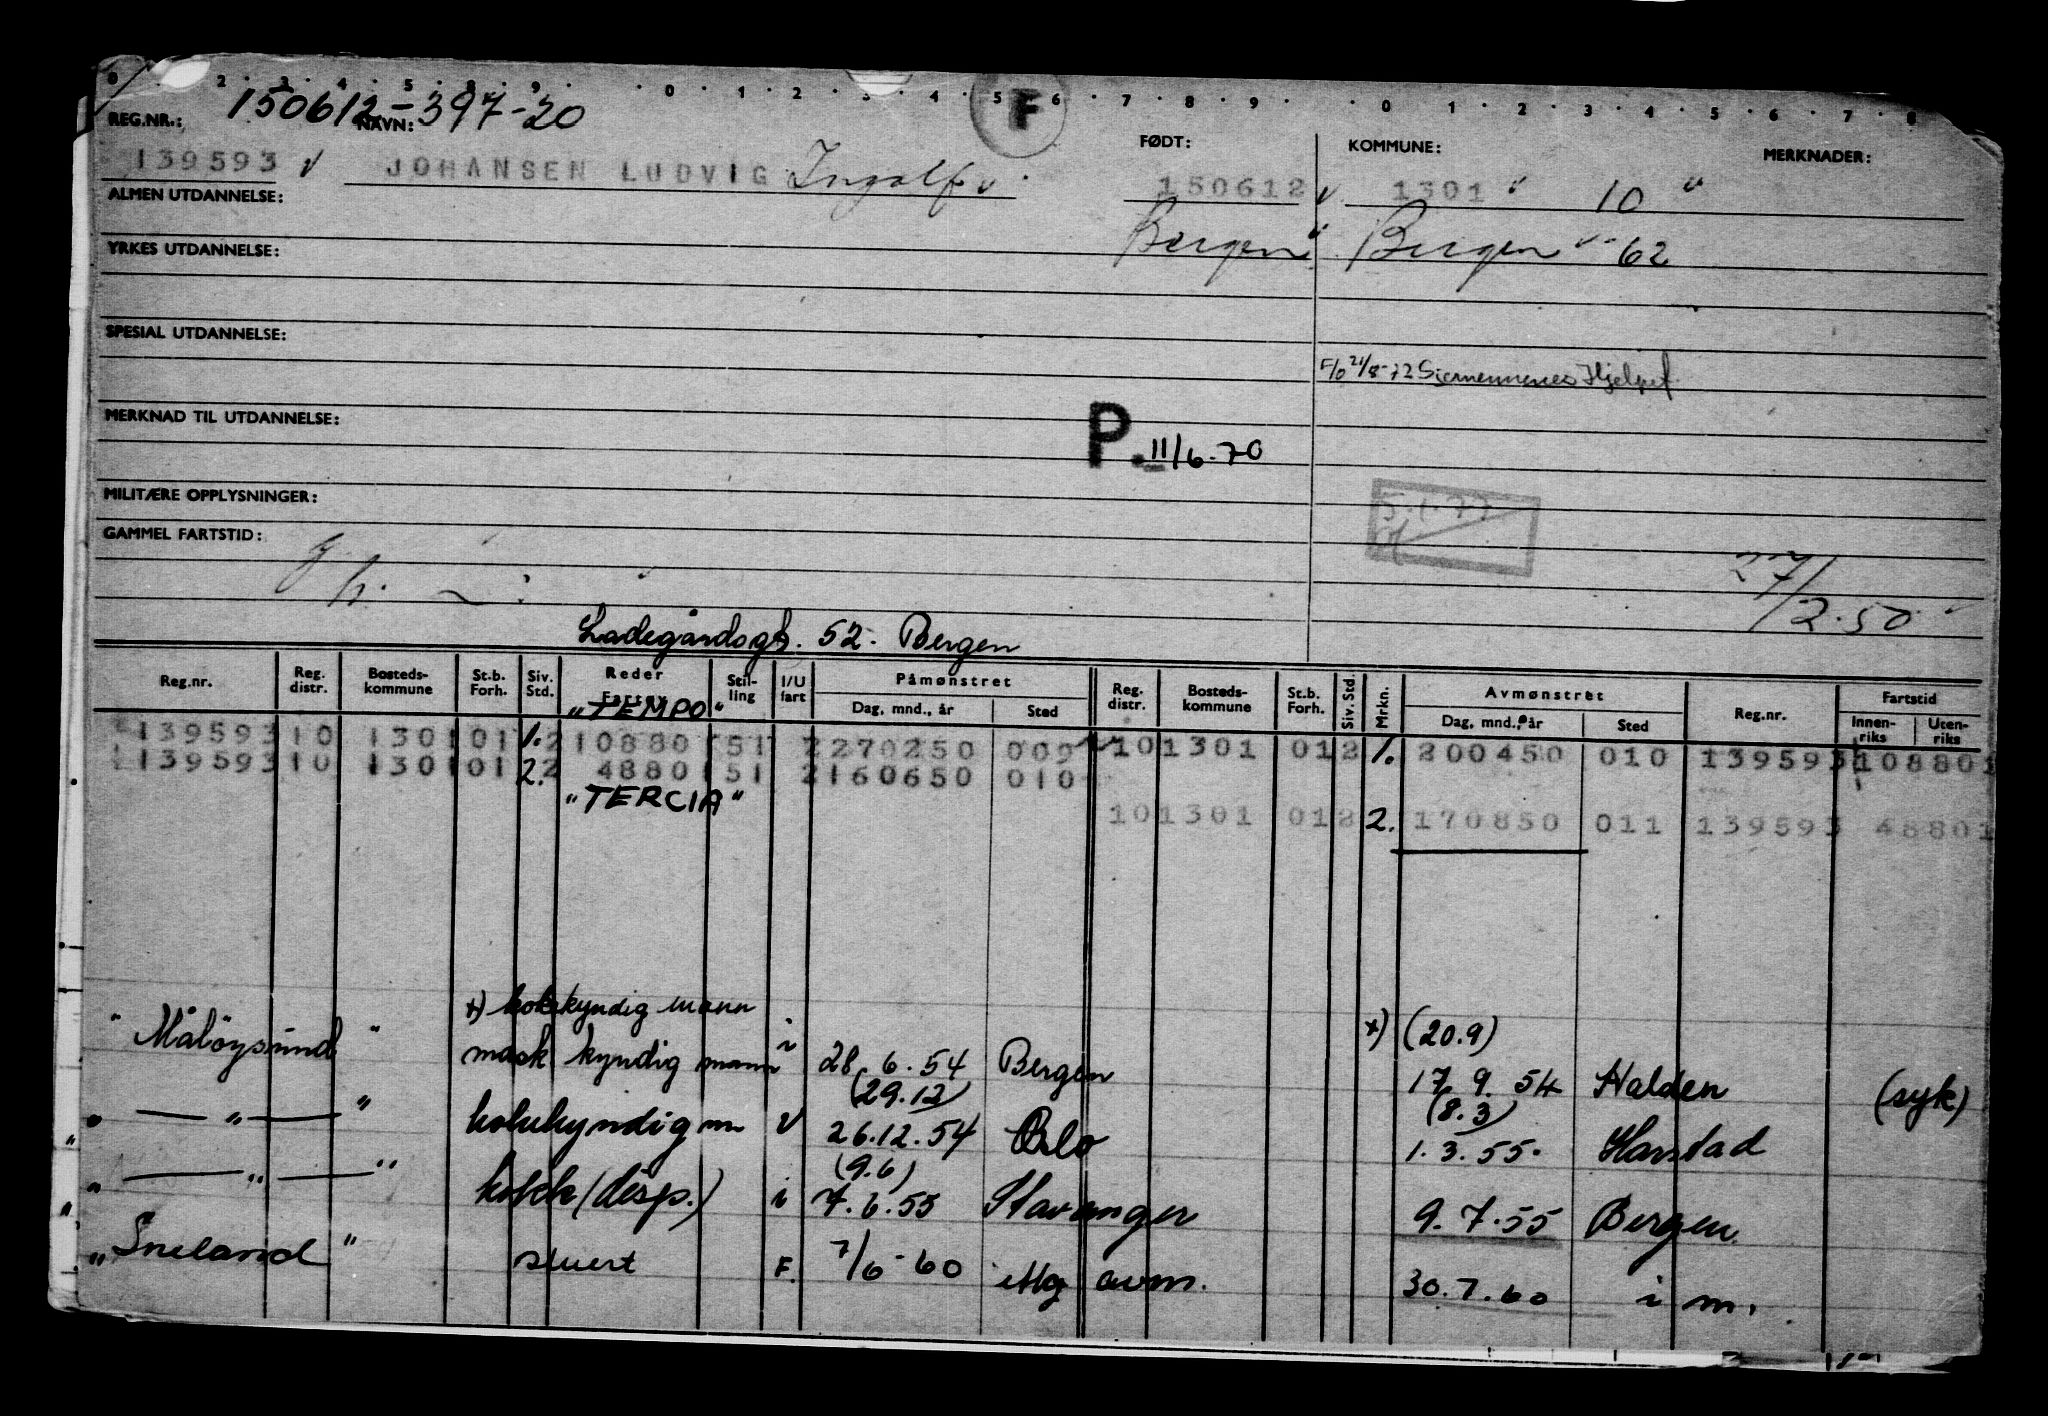 0 2 · 3 · 4 · 5 · 8 · 9 · · 0 · 1 · 2 · 3 · 4 · 5 · 6 · 7 · 8 · 9 · · 0 · 1 · 2 · 3 · 4 · 5 · 6 · 7 · 8
F
REG.NR.: 150612-397-20 NAVN: FØDT: KOMMUNE: MERKNADER:
139593 JOHANSEN LUDVIG Ingolf 150612 1301 10
ALMEN UTDANNELSE:
Bergen Bergen 62
YRKES UTDANNELSE:
SPESIAL UTDANNELSE:
F/O 21/8-72 Sjømennenes Hjelpef
MERKNAD TIL UTDANNELSE:
P. 11/6-70
MILITÆRE OPPLYSNINGER:
5.1.77
GAMMEL FARTSTID:
27/2.50
Ladegårdsgt. 52. Bergen
Reg.nr. Reg. distr. Bosteds-kommune St.b. Forh. Siv. Std. Reder Fartøy Stil-ling I/U fart Påmønstret Dag, mnd., år Sted Reg. distr. Bosteds-kommune St.b. Forh. Siv. Std. Mrkn. Avmønstret Dag, mnd., år Sted Reg.nr. Fartstid Innen-riks Uten-riks
"TEMPO"
139593 10 1301 01 1. 2 10880 151 2 270250 009 10 1301 01 2 1. 200450 010 139593 108801
139593 10 1301 01 2. 2 4880 151 2 160650 010
"TERCIA"
10 1301 01 2 2. 170850 011 139593 48801
x) kokkyndig mann x) (20.9)
"Måløysund" mask kyndig mann i 28.6.54 Bergen 17.9.54 Halden (syk)
(29.12) (8.3)
" — " — " kokkyndig m 26.12.54 Oslo 1.3.55. Harstad
(9.6)
" — " — " kokk (disp.) i 7.6.55 Stavanger 9.7.55 Bergen
"Sneland" stuert F. 7/6-60 avm. 30.7.60 i m.